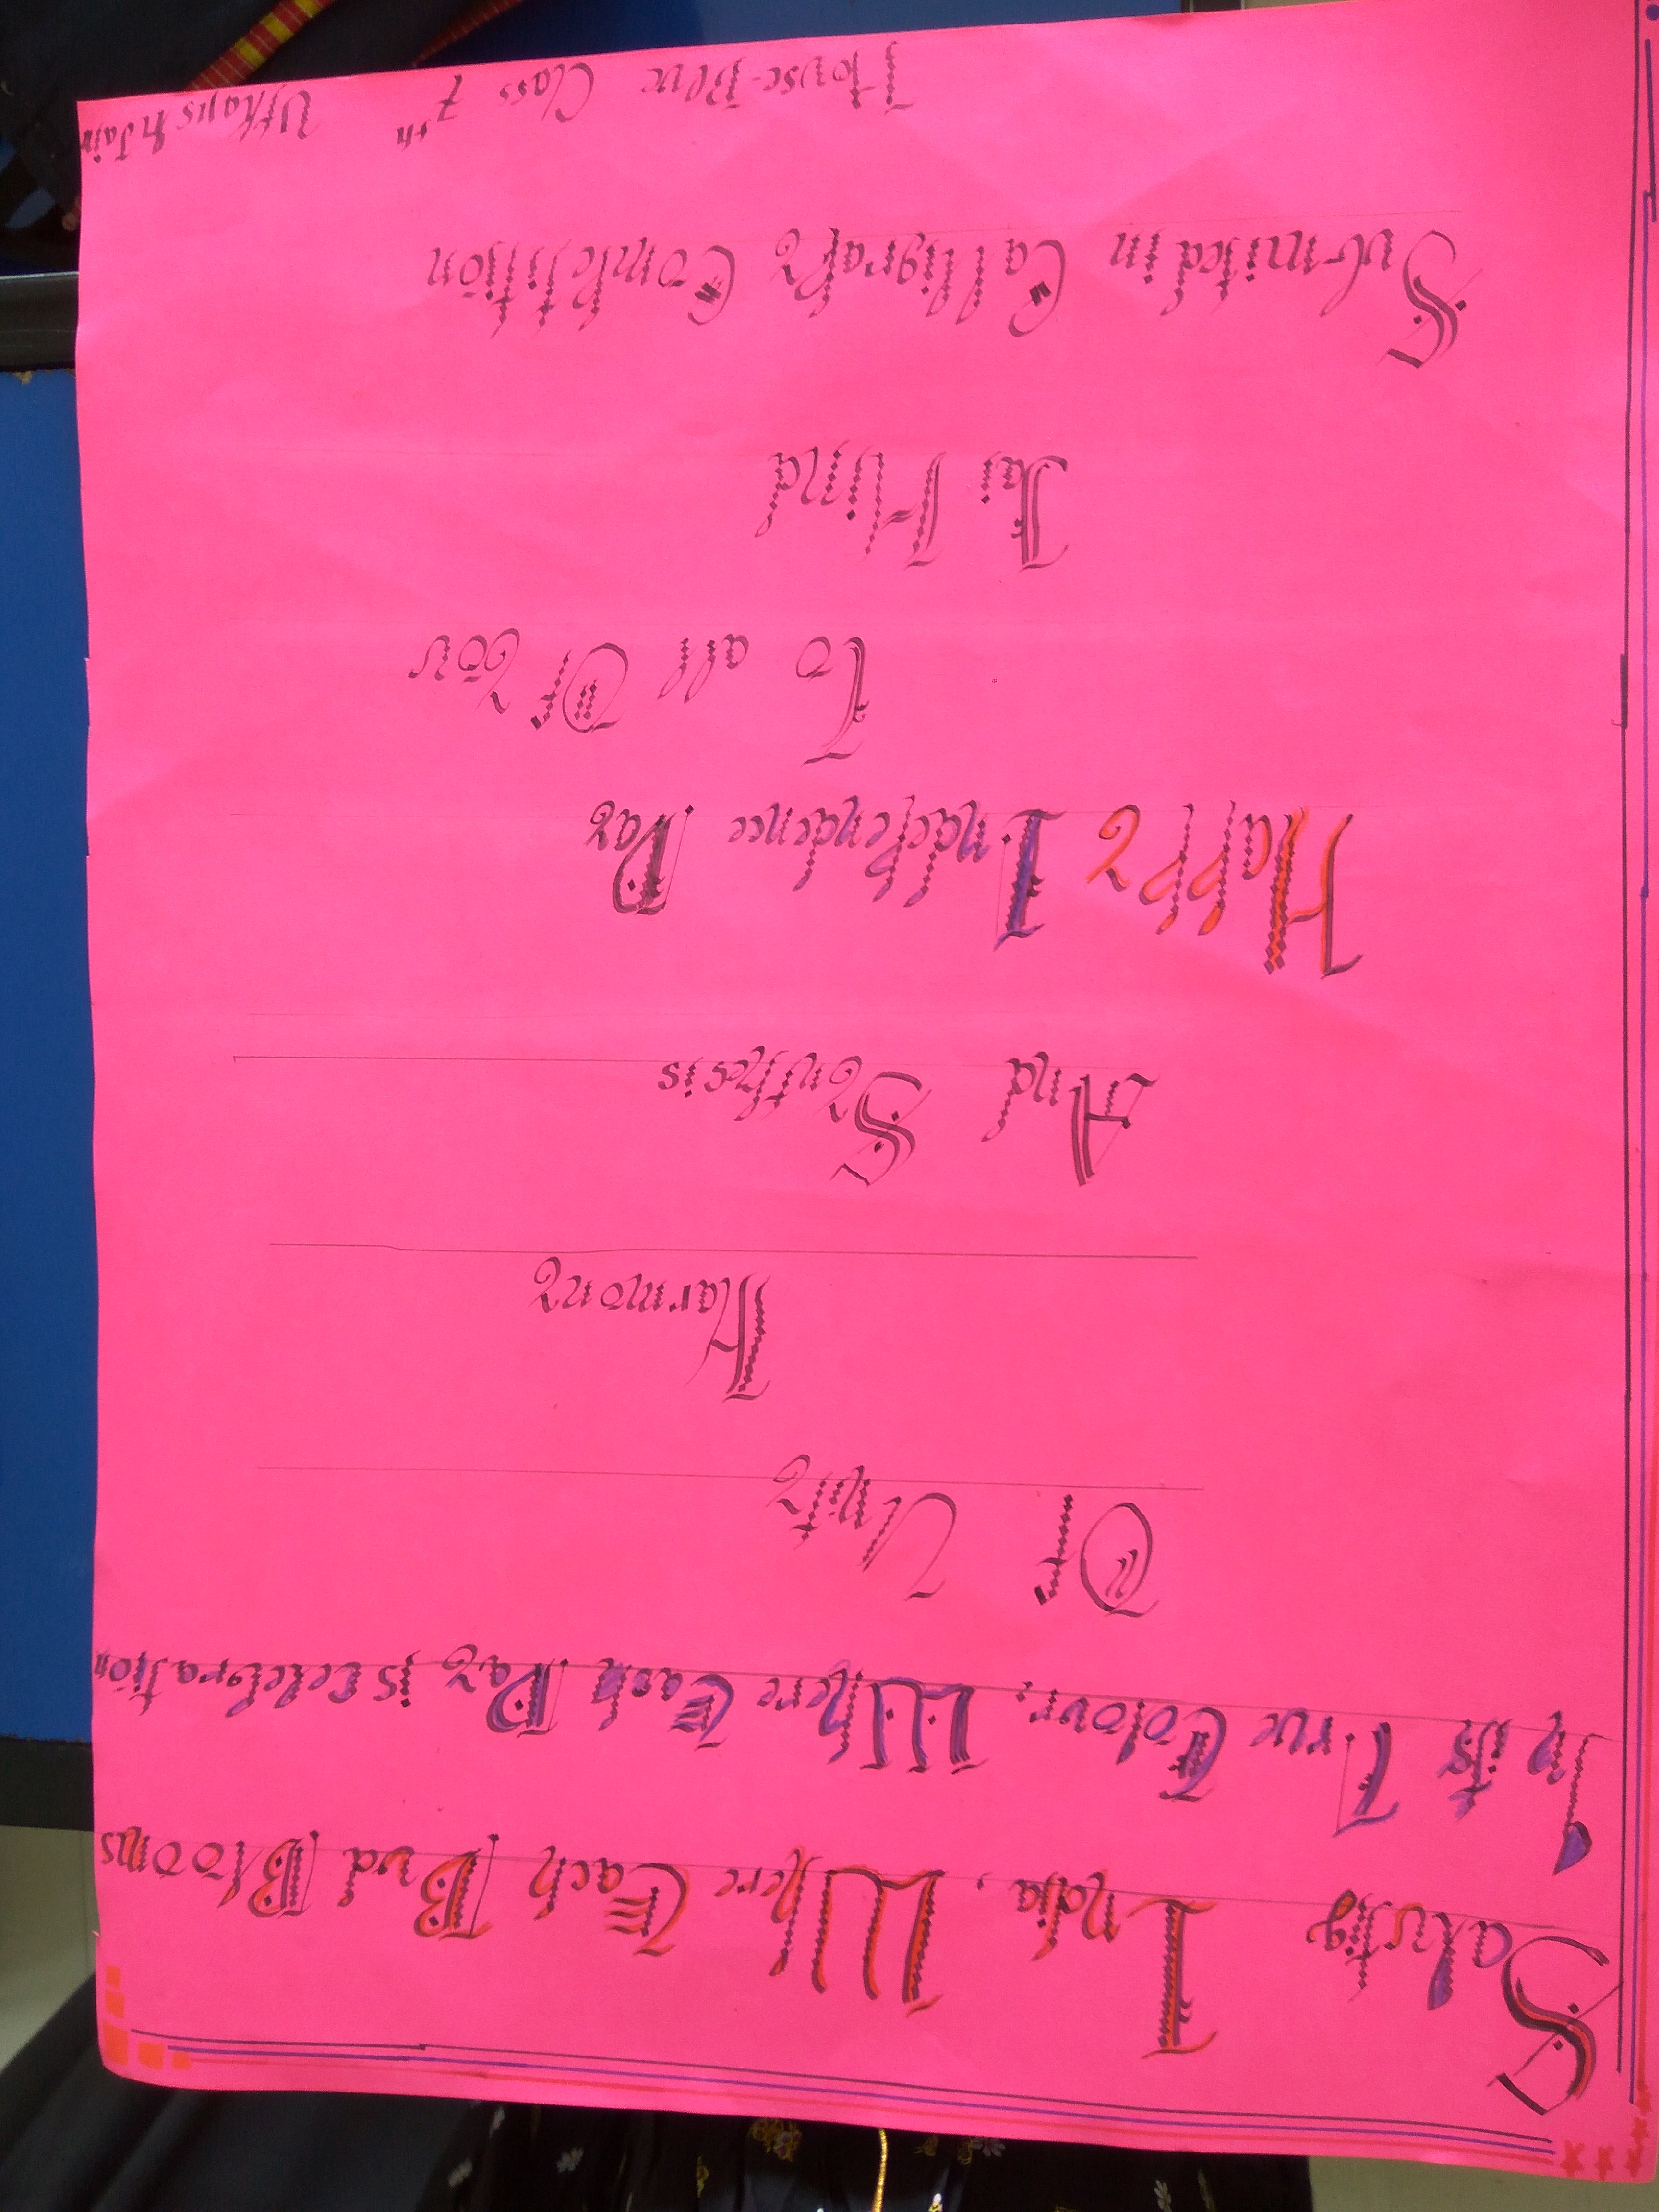 Saluting India, Where Each Bud Blooms
In its True Colour, Where Each Day is Celebration
Of Unity
Harmony
And Synthesis
Happy Independence Day
To all Of You
Jai Hind
Submited in Calligrapy Competition
House-Blue Class 7th Utkarsh Jain